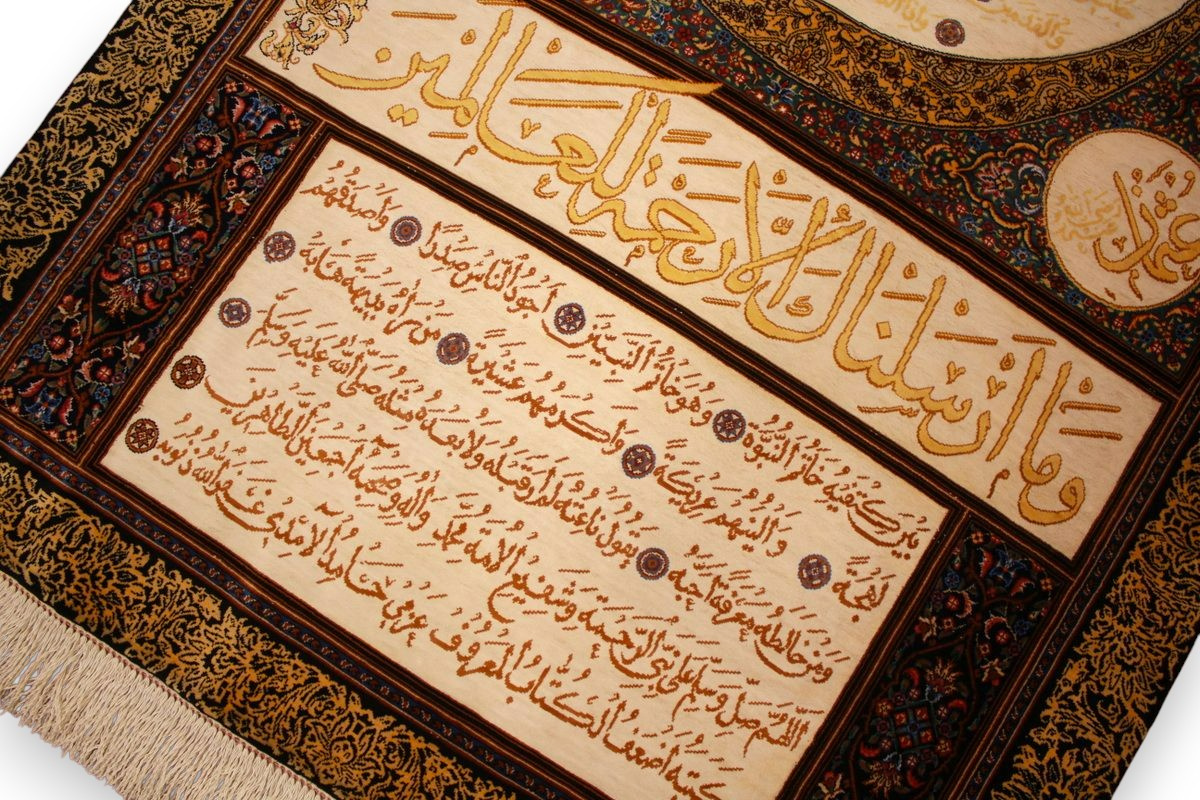 والقدمين
عثمان رضي الله عنه
وَمَا أَرْسَلْنَاكَ إِلَّا رَحْمَةً لِلْعَالَمِينَ
بَيْنَ كَتِفَيْهِ خَاتَمُ النُّبُوَّةِ وَهُوَ خَاتَمُ النَّبِيِّينَ أَجْوَدُ النَّاسِ صَدْرًا وَأَصْدَقُهُمْ
لَهْجَةً وَأَلْيَنُهُمْ عَرِيكَةً وَأَكْرَمُهُمْ عَشِيرَةً مَنْ رَآهُ بَدِيهَةً هَابَهُ
وَمَنْ خَالَطَهُ مَعْرِفَةً أَحَبَّهُ يَقُولُ نَاعِتُهُ لَمْ أَرَ قَبْلَهُ وَلَا بَعْدَهُ مِثْلَهُ صَلَّى اللهُ عَلَيْهِ وَسَلَّمَ
اللَّهُمَّ صَلِّ وَسَلِّمْ عَلَى نَبِيِّ الرَّحْمَةِ وَشَفِيعِ الْأُمَّةِ مُحَمَّدٍ وَآلِهِ وَصَحْبِهِ أَجْمَعِينَ الطَّاهِرِينَ
كَتَبَهُ أَضْعَفُ الْكُتَّابِ الْمَعْرُوفُ عزمي حَامِدُ الْآمِدِي غَفَرَ اللهُ ذُنُوبَهُ